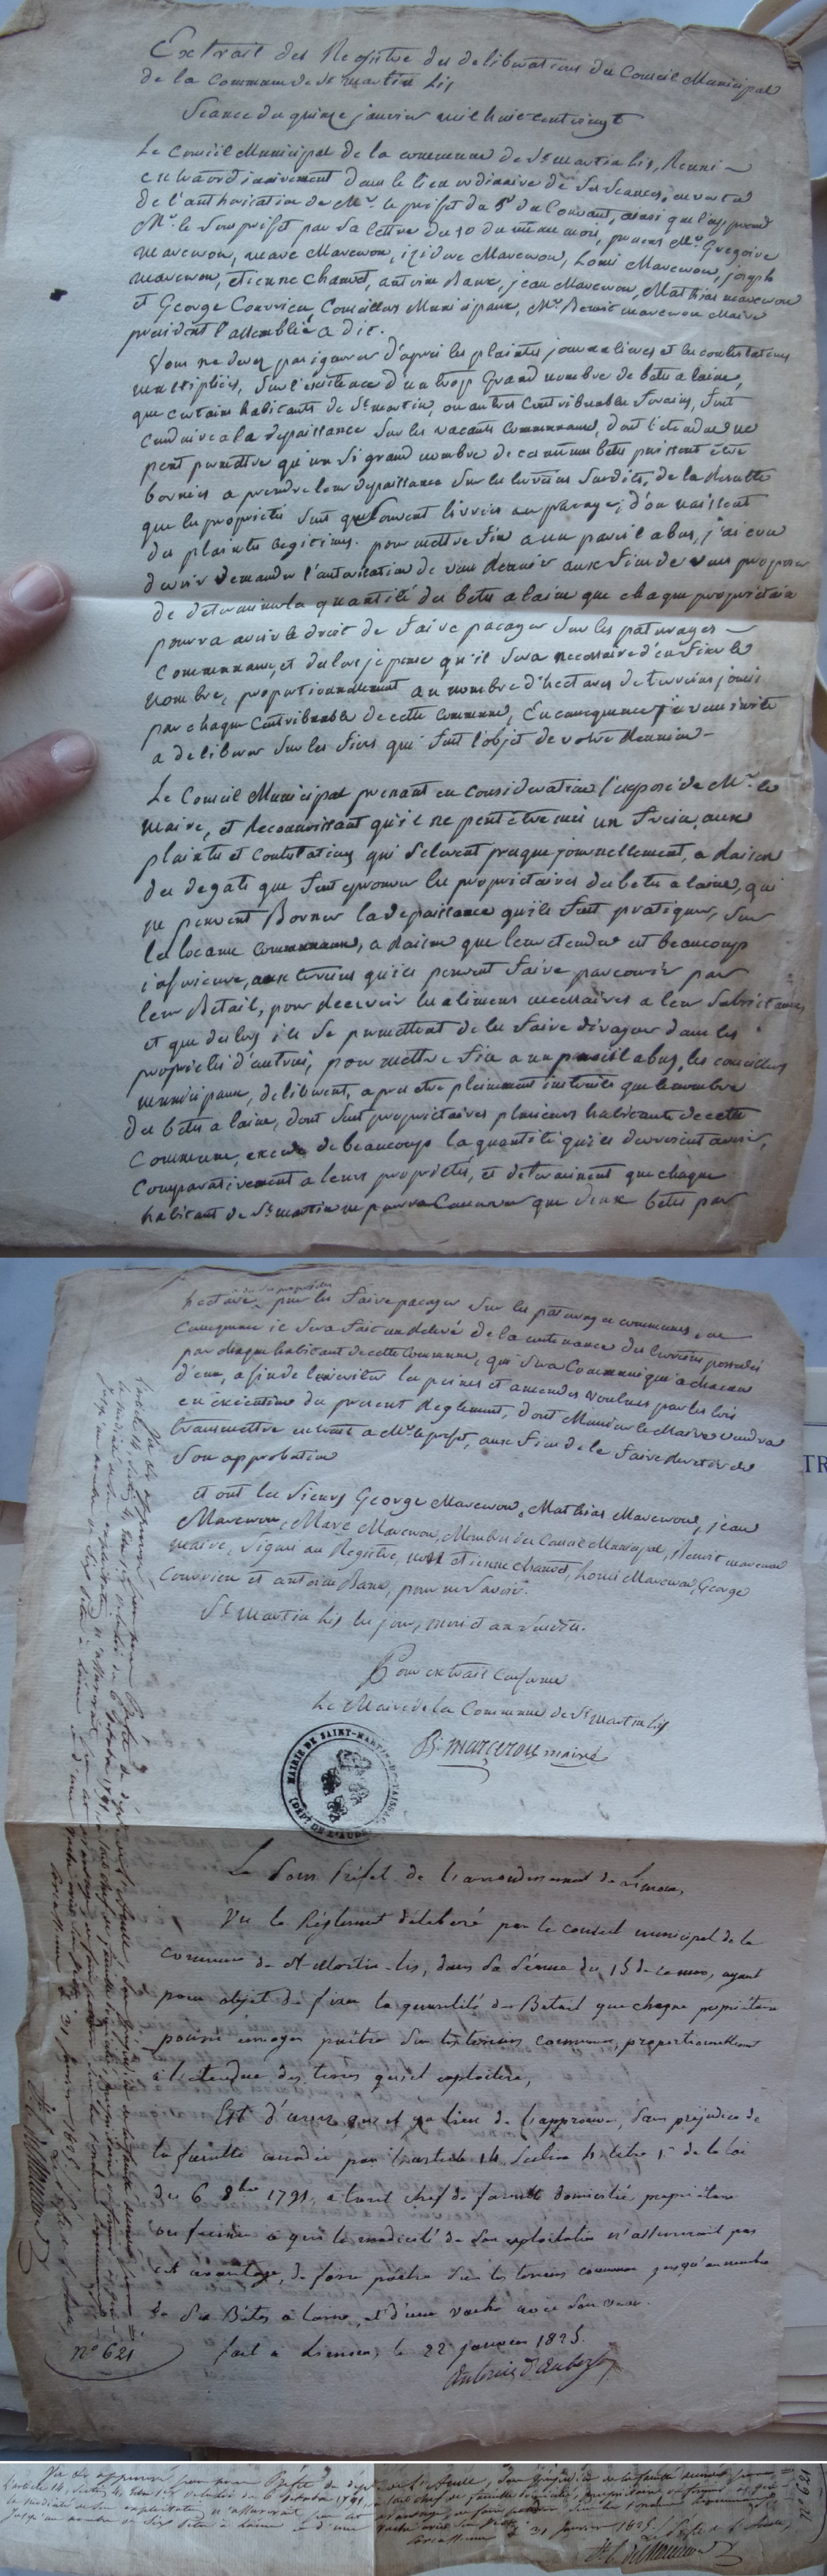 Extrait des Registre des deliberations du Conseil Municipal
de la Commune de St martin Lis
Seance du quinze janvier mil huit cent vingt
Le Conseil Municipal de la commune de St martin Lis, Reuni
extraordinairement dans le lieu ordinaire de ses Seances, en vertu
de l'authorisation de Mr. le prefet du 5 du Courant, ainsi que l'a
Mr. le Sous prefet par sa lettre du 10 du même mois, presens Mr. Gregoire
Marcerou, Marc Marcerou, izidore Marcerou, Louis Marcerou, joseph
Marcerou, etienne Chauvet, antoine Banx, jean Marcerou, Mathias marcerou
et George Couvrieu, Conseillers Municipaux, Mr. Benoit marcerou Maire
president l'assemblée a dit.
Vous ne devez pas ignorer d'après les plaintes journalieres et les contestations
multipliées, sur l'existence d'un trop Grand nombre de betes a laine,
que certains habitants de St martin, ou autres Contribuables forains, font
conduire a la depaissance sur les vacants Communaux, dont l'etendue ne
peut permettre qu'un si grand nombre de ces mêmes betes puissent être
bornées a prendre leur depaissance sur les terreins susdits, de la resulte
que les propriétés sont souvent livrées au pacage, d'ou naissent
des plaintes legitimes. pour mettre fin a un pareil abus, j'ai cru
devoir demander l'autorisation de vous Reunir aux fins de vous proposer
de determiner la quantité des betes a laine que chaque proprietaire
pourra avoir le droit de faire pacager sur les paturages
Communaux, et des lors je pense qu'il sera necessaire d'en fixer le
nombre, proportionnellement au nombre d'hectares de terreins jouis
par chaque Contribuable de cette Commune, En consequence je vous invite
a deliberer sur les fins qui font l'objet de votre Reunion
Le Conseil Municipal prenant en Consideration l'exposé de Mr. le
Maire, et Reconnoissant qu'il ne peut être mis un frein, aux
plaintes et Contestations qui s'elevent presque journellement, a Raison
des degats que font eprouver les proprietaires des betes a laine, qui
ne peuvent Borner la depaissance qu'ils font pratiquer, sur
les locaux Communaux, a Raison que leur etendue est beaucoup
inferieure, aux terreins qu'ils peuvent faire parcourir par
leur Betail, pour recevoir les alimens necessaires a leur subsistances
et que des lors ils se permettent de les faire divaguer dans les
propriétés d'autrui, pour mettre fin a un pareil abus, les conseillers
municipaux, deliberent, apres etre pleinement instruits que le nombre
des betes a laine, dont sont proprietaires plusieurs habitants de cette
Commune, excede de beaucoup la quantité qu'ils devroient avoir,
Comparativement a leurs propriétés, et determinent que chaque
habitant de St martin ne pourra Conserver que deux betes par
hectare de ses propriétés pour les faire pacager sur les paturages communaux, en
Consequence il sera fait un relevé de la contenance des terreins possedés
par chaque habitant de cette Commune, qui sera Communiqué a chacun
d'eux, afin de leur eviter les peines et amendes voulues par les lois
en execution du present Reglement, dont Monsieur le Maire voudra
transmettre extrait a Mr. le prefet, aux fins de le faire revetir de
Son approbation
et ont les sieurs George Marcerou, Mathias Marcerou, jean
Marcerou, Marc Marcerou, Membres du Conseil Municipal, Benoit marcerou
maire, signés au Registre, non etienne Chauvet, Louis Marcerou, George
Couvrieu et antoine Banx, pour ne savoir.
St Martin Lis les jour, mois et an susdits.
Pour extrait Conforme
Le Maire de la Commune de St Martin Lis
B. marcerou maire
MAIRIE DE SAINT-MARTIN-DE-TAISSAC
(DEPT DE L'AUDE)
Le Sous Préfet de l'arrondissement de Limoux,
Vu le Réglement délibéré par le conseil municipal de la
commune de St Martin-lis, dans sa séance du 15 de ce mois, ayant
pour objet de fixer la quantité de Bétail que chaque propriétaire
pourra envoyer paitre sur les terrains communaux, proportionnellement
à l'étendue des terres qu'il exploitera,
Est d'avis qu'il y a lieu de l'approuver, sans préjudice de
la faculté accordée par l'article 14, section 4, titre 1er de la loi
du 6 8bre 1791, à tout chef de famille domicilié, propriétaire
ou fermier à qui la modicité de son exploitation n'assurerait pas
cet avantage, de faire paitre sur les terrains communaux jusqu'au nombre
de six Bêtes à laine, et d'une vache avec son veau.
fait à Limoux, le 22 janvier 1825.
No 621
Vu et approuvé par nous Préfet du dépt de l'Aude, sans préjudice de la faculté
l'article 14, section 4, titre 1er de la loi du 6 octobre 1791, à tout chef de famille domicilié, propriétaire ou fermier à qui
la modicité de son exploitation n'assurerait pas cet avantage, de faire paitre sur les terrains communaux
jusqu'au nombre de six bêtes à laine et d'une vache avec son veau.
Carcassonne le 31 janvier 1825. Le Préfet de l'Aude,